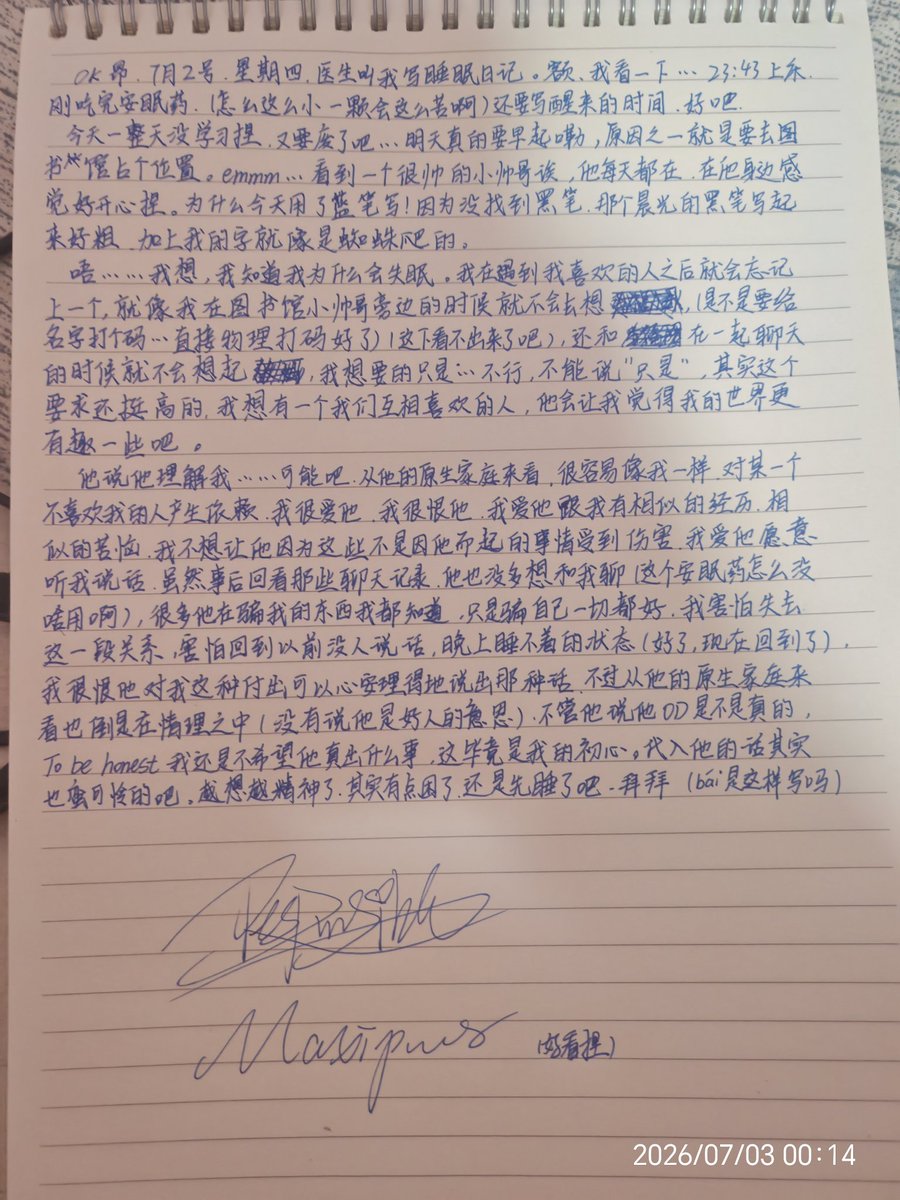 OK昂.7月2号.星期四.医生叫我写睡眠日记。额、我看一下…23:43上床.
刚吃完安眠药.(怎么这么小一颗会这么苦啊)还要写醒来的时间.好吧.
今天一整天没学习捏.又要废了吧…明天真的要早起嘞,原因之一就是要去图
书馆占个位置。emmm…看到一个很帅的小帅哥诶,他每天都在.在他身边感
觉好开心捏。为什么今天用了蓝笔写!因为没找到黑笔.那个晨光的黑笔写起
来好粗.加上我的字就像是蜘蛛爬的。
唔……我想,我知道我为什么会失眠。我在遇到我喜欢的人之后就会忘记
上一个,就像我在图书馆小帅哥旁边的时候就不会去想,(是不是要给
名字打个码…直接物理打码好了)(这下看不出来了吧),还和在一起聊天
的时候就不会想起,我想要的只是…不行,不能说"只是",其实这个
要求还挺高的.我想有一个我们互相喜欢的人,他会让我觉得我的世界更
有趣一些吧。
他说他理解我……可能吧.从他的原生家庭来看.很容易像我一样.对某一个
不喜欢我的人产生依赖.我很爱他.我很恨他.我爱他跟我有相似的经历.相
似的苦恼.我不想让他因为这些不是因他而起的事情受到伤害.我爱他愿意
听我说话.虽然事后回看那些聊天记录.他也没多想和我聊(这个安眠药怎么没
啥用啊),很多他在骗我的东西我都知道.只是骗自己一切都好.我害怕失去
这一段关系.害怕回到以前没人说话,晚上睡不着的状态(好了,现在回到了).
我很恨他对我这种付出可以心安理得地说出那种话.不过从他的原生家庭来
看也倒是在情理之中(没有说他是好人的意思).不管他说他OD是不是真的,
To be honest 我还是不希望他真出什么事,这毕竟是我的初心。代入他的话其实
也蛮可怜的吧。越想越精神了.其实有点困了.还是先睡了吧.拜拜(bái是这样写吗)
Maxipus (好看捏)
2026/07/03 00:14